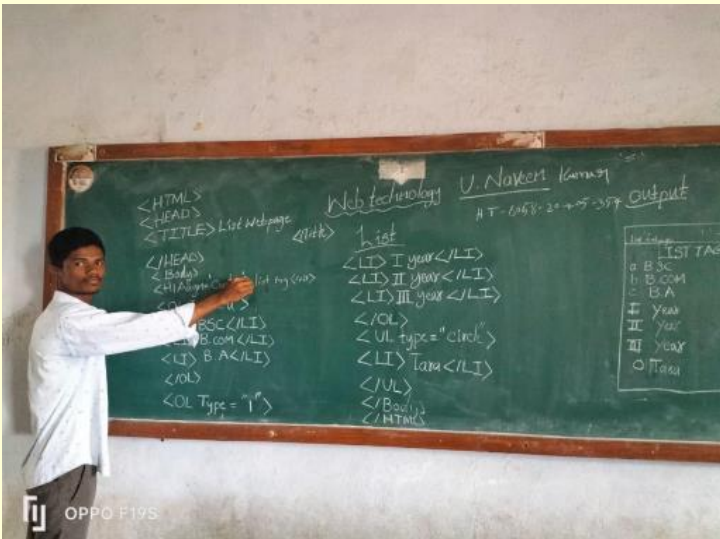 Web technology U. Naveen Kumar
HT-6058-20-405-354
<HTML>
<HEAD>
<TITLE> List Webpage <Title>
</HEAD>
<Body>
<H1 Align= list tag </H1>
BSC</LI>
B.COM</LI>
<LI> B.A</LI>
</OL>
<OL Type="I">
List
<LI> I year</LI>
<LI> II year</LI>
<LI> III year</LI>
</OL>
<UL type="circle">
<LI> Tara</LI>
</UL>
</Body>
</HTML>
Output
LIST TAG
a BSC
b B.COM
c B.A
I Year
II Year
III Year
O Tara
OPPO F19S